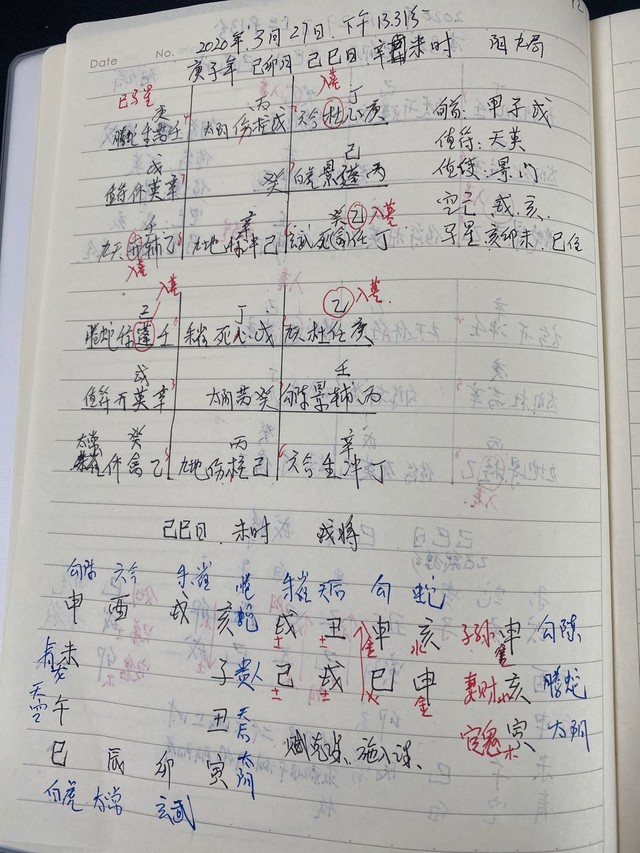 12
Date No.
2020年3月27日.下午13.31分
庚子年 己卯月 己巳日 辛未时 阳九局
旬首:甲子戊
值符:天英
值使:景门
空亡 戌.亥.
马星
入墓
癸 丙 丁
腾蛇生芮壬 太阴伤柱戊 六合杜心庚
戊 己
值符休英辛 癸 白虎景蓬丙
壬 辛 癸乙 入墓
九天开辅乙 九地惊冲己 玄武死禽任丁
入墓
入墓 入墓
己 丁 乙
腾蛇 蓬壬 朱雀死心戊 杜任庚
戊 壬
值符开英辛 太阴芮癸 勾陈景辅丙
太常 癸 丙 辛
休禽乙 九地伤柱己 六合生冲丁
己巳日.未时 戌将
勾陈 六合 朱雀 腾蛇 朱雀 天后 勾 蛇
申 酉 戌 亥 戌 丑 申 亥 子孙 申 勾陈
土 土 金 水 金
青龙 未 子 贵人 己 戌 巳 申 妻财 亥 腾蛇
土 土 火 金 水
天空 午 丑 天后 官鬼 寅 太阴
木
巳 辰 卯 寅 太阴
白虎 太常 玄武